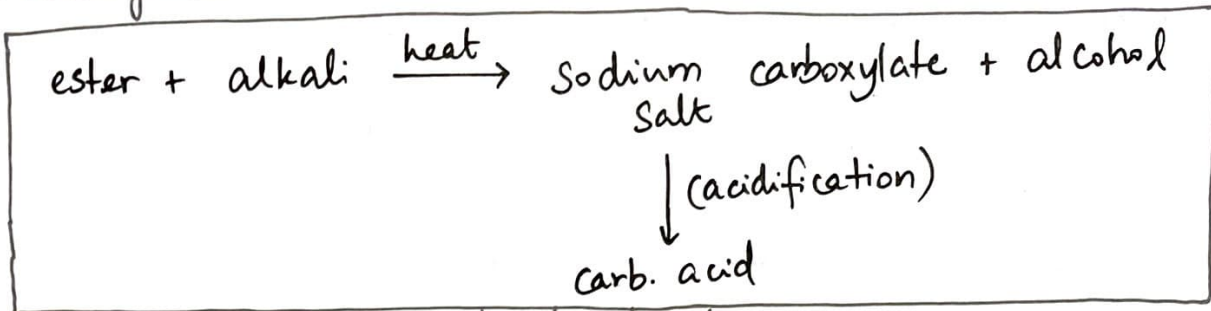 heat
ester + alkali ⟶ Sodium carboxylate + alcohol
Salt
↓ (acidification)
carb. acid